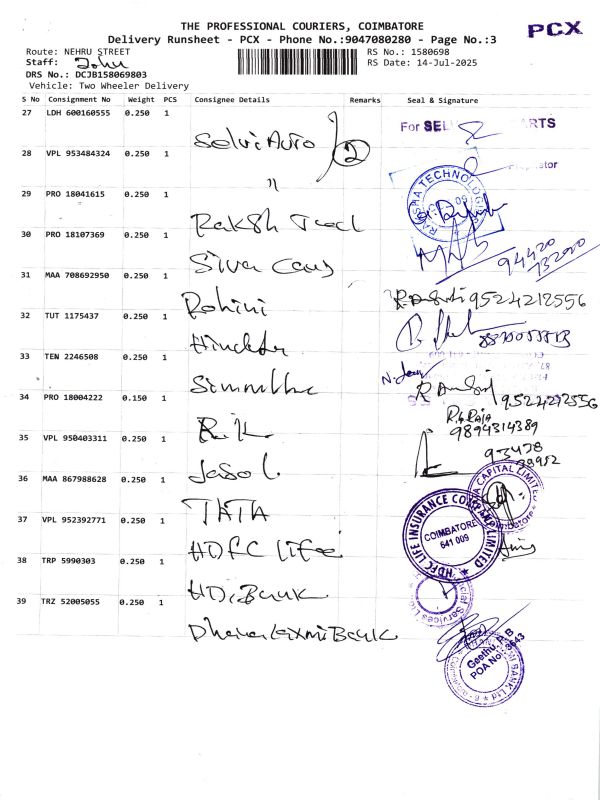 THE PROFESSIONAL COURIERS, COIMBATORE
PCX
Delivery Runsheet - PCX - Phone No.:9047080280 - Page No.:3
Route: NEHRU STREET
RS No.: 1580698
Staff: John
RS Date: 14-Jul-2025
DRS No.: DCJB158069803
Vehicle: Two Wheeler Delivery
S No Consignment No Weight PCS Consignee Details Remarks Seal & Signature
27 LDH 600160555 0.250 1
Selvi Auto 2
For SEL PARTS
28 VPL 953484324 0.250 1
"
29 PRO 18041615 0.250 1
Raksh
RAKSHA TECHNOLOGIES
30 PRO 18107369 0.250 1
Siva
94420
73200
31 MAA 708692950 0.250 1
Rohini
9524212556
32 TUT 1175437 0.250 1
33 TEN 2246508 0.250 1
9524212556
34 PRO 18004222 0.150 1
R.G. Raja
9894314389
35 VPL 950403311 0.250 1
93428
39952
36 MAA 867988628 0.250 1
TATA
CAPITAL LIMITED
37 VPL 952392771 0.250 1
HDFC Life
HDFC LIFE INSURANCE COMPANY LIMITED
COIMBATORE
641 009
38 TRP 5990303 0.250 1
HD. Bank
39 TRZ 52005055 0.250 1
Dhanalaxmi Bank
Geethu. P. B
POA No.